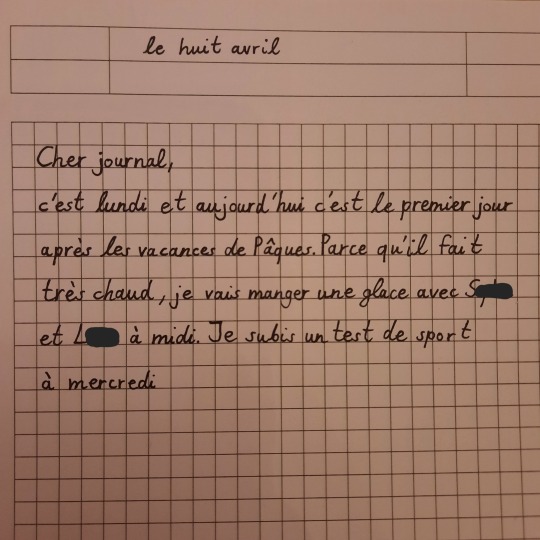 le huit avril
Cher journal,
c'est lundi et aujourd'hui c'est le premier jour
après les vacances de Pâques. Parce qu'il fait
très chaud, je vais manger une glace avec
et à midi. Je subis un test de sport
à mercredi